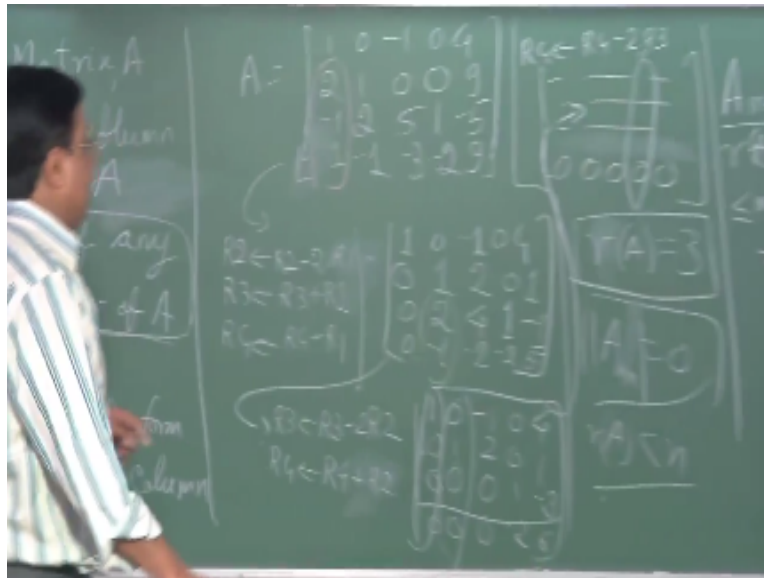 Matrix A
Column
A
any
of A
form
Column
A =
1 0 -1 0 4
2 1 0 0 9
-1 2 5 1 -5
1 -1 -3 -2 9
R2 ← R2 - 2R1
R3 ← R3 + R1
R4 ← R4 - R1
1 0 -1 0 4
0 1 2 0 1
0 2 4 1 -1
0 -1 -2 -2 5
R3 ← R3 - 2R2
R4 ← R4 + R2
1 0 -1 0 4
0 1 2 0 1
0 0 0 1 -3
R4 ← R4 - 2R3
0 0 0 0 0
r(A) = 3
|A| = 0
r(A) < n